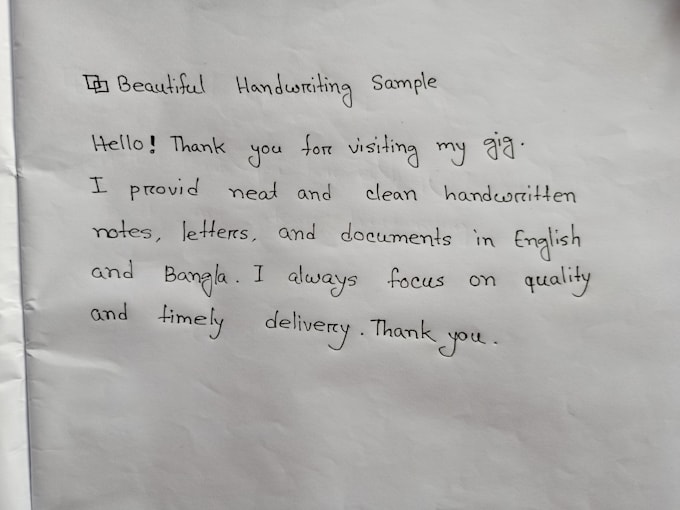 Beautiful Handwriting Sample
Hello! Thank you for visiting my gig.
I provid neat and clean handwritten
notes, letters, and documents in English
and Bangla. I always focus on quality
and timely delivery. Thank you.